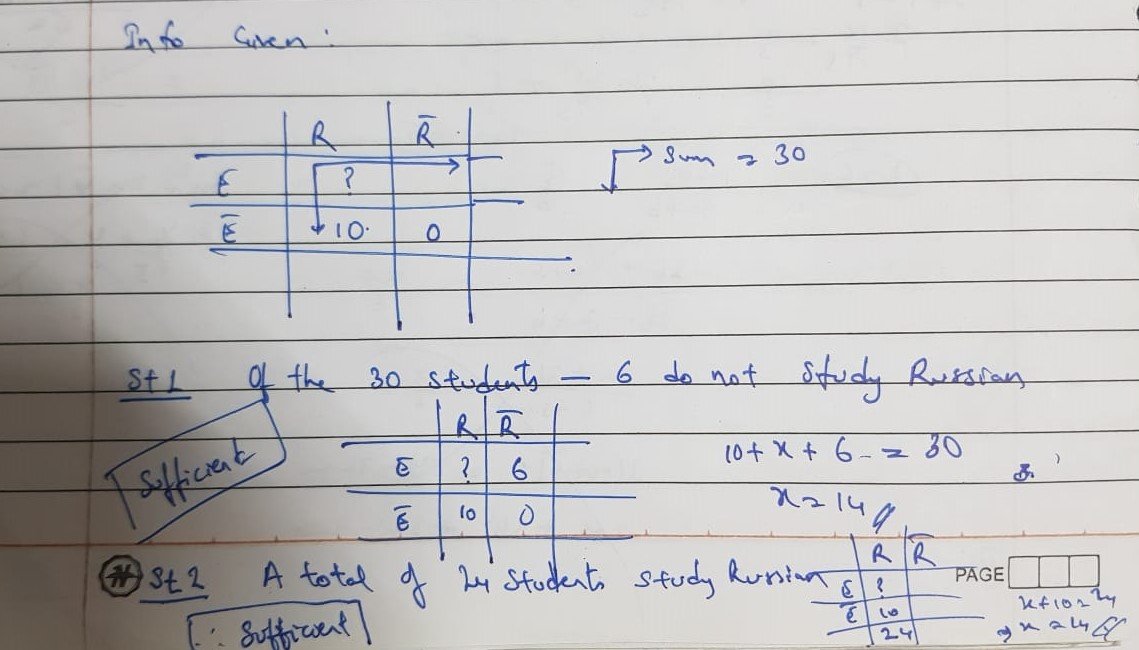 Info Given :
R R̅
E ?
E̅ 10. 0
Sum = 30
St 1 Of the 30 students — 6 do not study Russian
Sufficient
R R̅
E̅ ? 6
E̅ 10 0
10 + x + 6 = 30
x = 14
St 2 A total of 24 students study Russian
∴ Sufficient
R R̅
E̅ ?
E̅ 10
24
PAGE
x + 10 = 24
⇒ x = 14